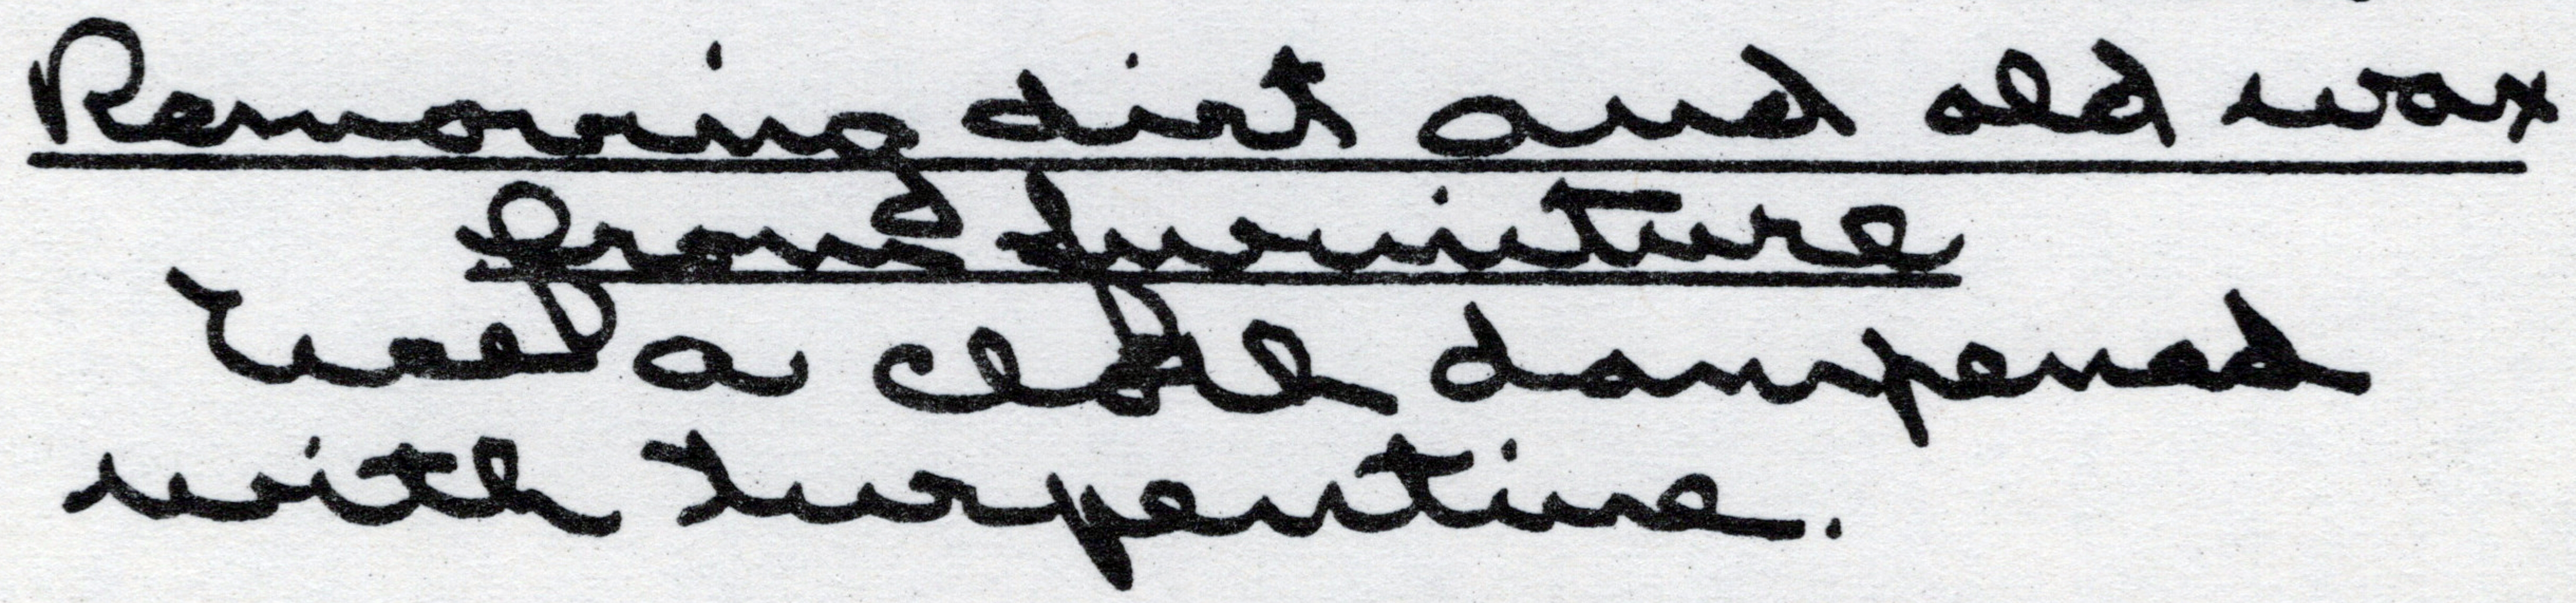 Removing dirt and old wax
from furniture
Use a cloth dampened
with turpentine.